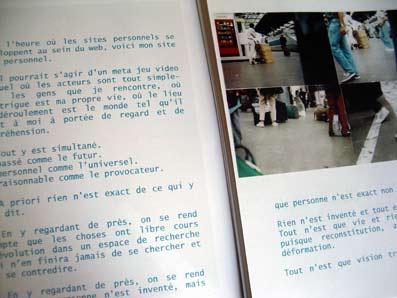 l'heure où les sites personnels se
loppent au sein du web, voici mon site
personnel.
l pourrait s'agir d'un meta jeu video
uel où les acteurs sont tout simple-
les gens que je rencontre, où
trigue est ma propre vie, où le lieu
déroulement est le monde tel qu'il
t à moi à portée de regard et de
réhension.
out y est simultané.
assé comme le futur.
ersonnel comme l'universel.
raisonnable comme le provocateur.
A priori rien n'est exact de ce qui y
dit.
En y regardant de près, on se rend
mpte que les choses ont libre cours
évolution dans un espace de recherche
i n'en finira jamais de se chercher et
se contredire.
En y regardant de près, on se rend
personne n'est inventé, mais
que personne n'est exact non
Rien n'est inventé et tout e
Tout n'est que vie et rien
puisque reconstitution, a
déformation.
Tout n'est que vision tr